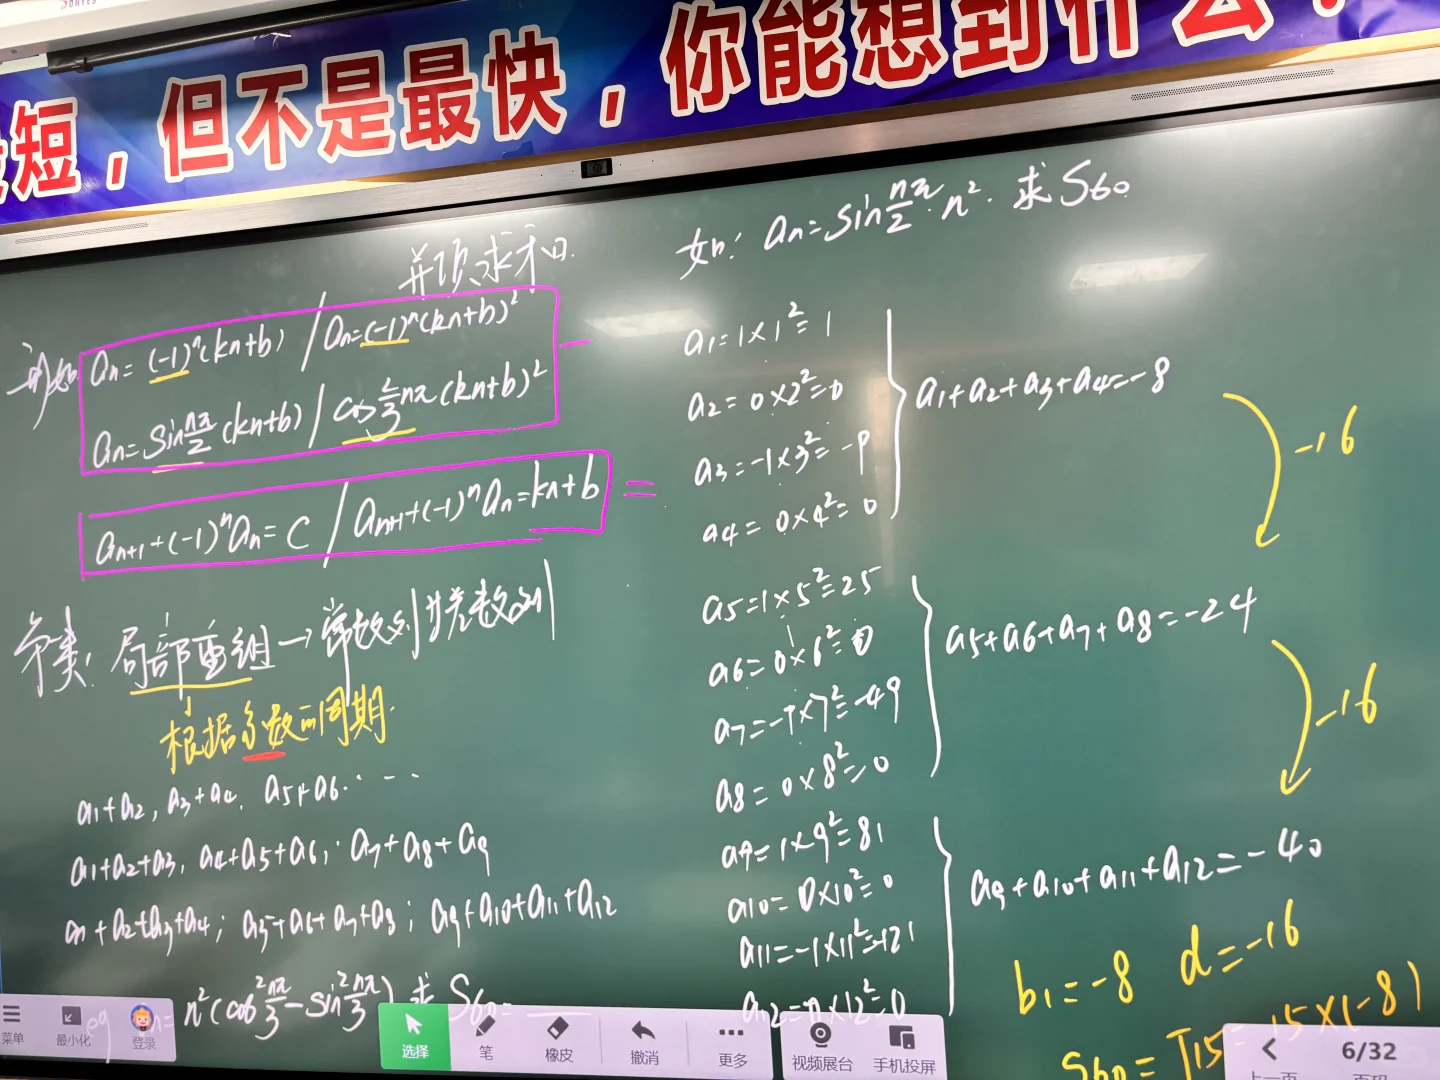 短，但不是最快，你能想到什么？
并项求和.
例如 an=(-1)ⁿ(kn+b) / an=(-1)ⁿ(kn+b)²
an=sin nπ/2 (kn+b) / cos 2/3 nπ(kn+b)²
an+1+(-1)ⁿan=C / an+1+(-1)ⁿan=kn+b
局部重组→常数列|等差数列|
根据系数的周期.
a1+a2, a3+a4, a5+a6……
a1+a2+a3, a4+a5+a6, a7+a8+a9
a1+a2+a3+a4; a5+a6+a7+a8; a9+a10+a11+a12
n²(cos² nπ/3 - sin² nπ/3) 求 S60=
如: an=sin nπ/2 · n². 求S60
a1=1×1²=1
a2=0×2²=0
a3=-1×3²=-9
a4=0×4²=0
a1+a2+a3+a4=-8
-16
a5=1×5²=25
a6=0×6²=0
a7=-1×7²=-49
a8=0×8²=0
a5+a6+a7+a8=-24
-16
a9=1×9²=81
a10=0×10²=0
a11=-1×11²=-121
a12=0×12²=0
a9+a10+a11+a12=-40
b1=-8 d=-16
S60=T15=15×(-8)
菜单
最小化
登录
选择
笔
橡皮
撤消
更多
视频展台
手机投屏
6/32
上一页
页码